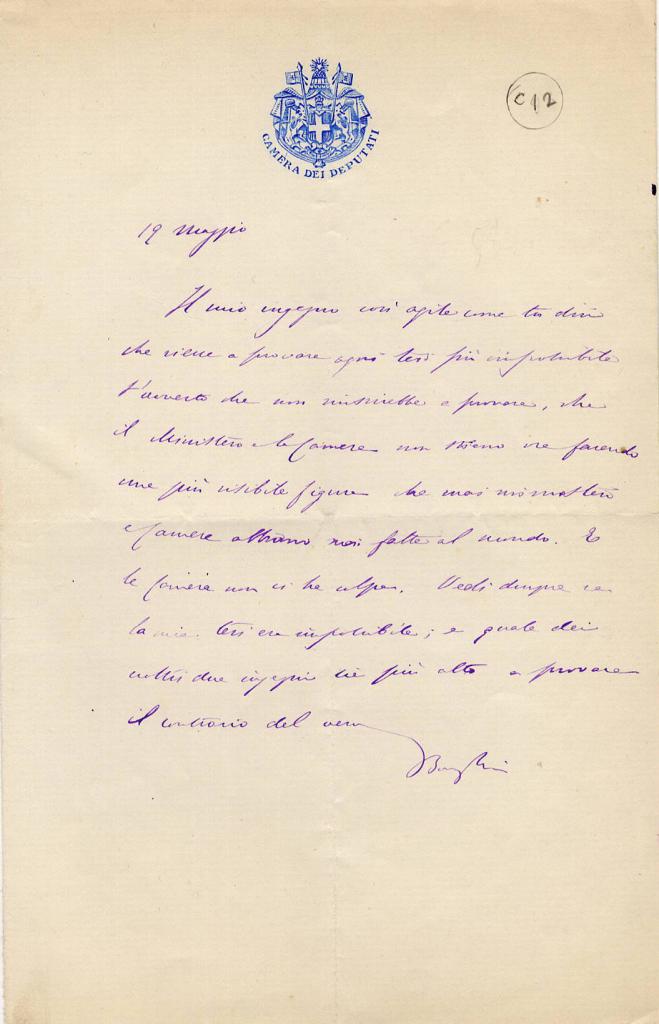 CAMERA DEI DEPUTATI
C12
19 Maggio
Il mio ingegno così agile come tu dici
che riesce a provare ogni tesi più improbabile
t'avverto che non riuscirebbe a provare, che
il Ministero e la Camera non stieno ora facendo
una più risibile figura che mai ministero
e Camera abbiano mai fatta al mondo. E
la Camera non ci ha colpa. Vedi dunque se
la mia tesi era improbabile; e quale dei
nostri due ingegni sia più atto a provare
il contrario del vero